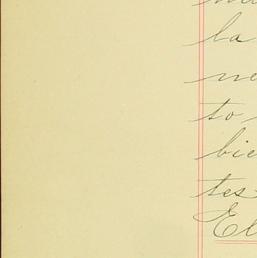 la
no
to
bie
tes
El